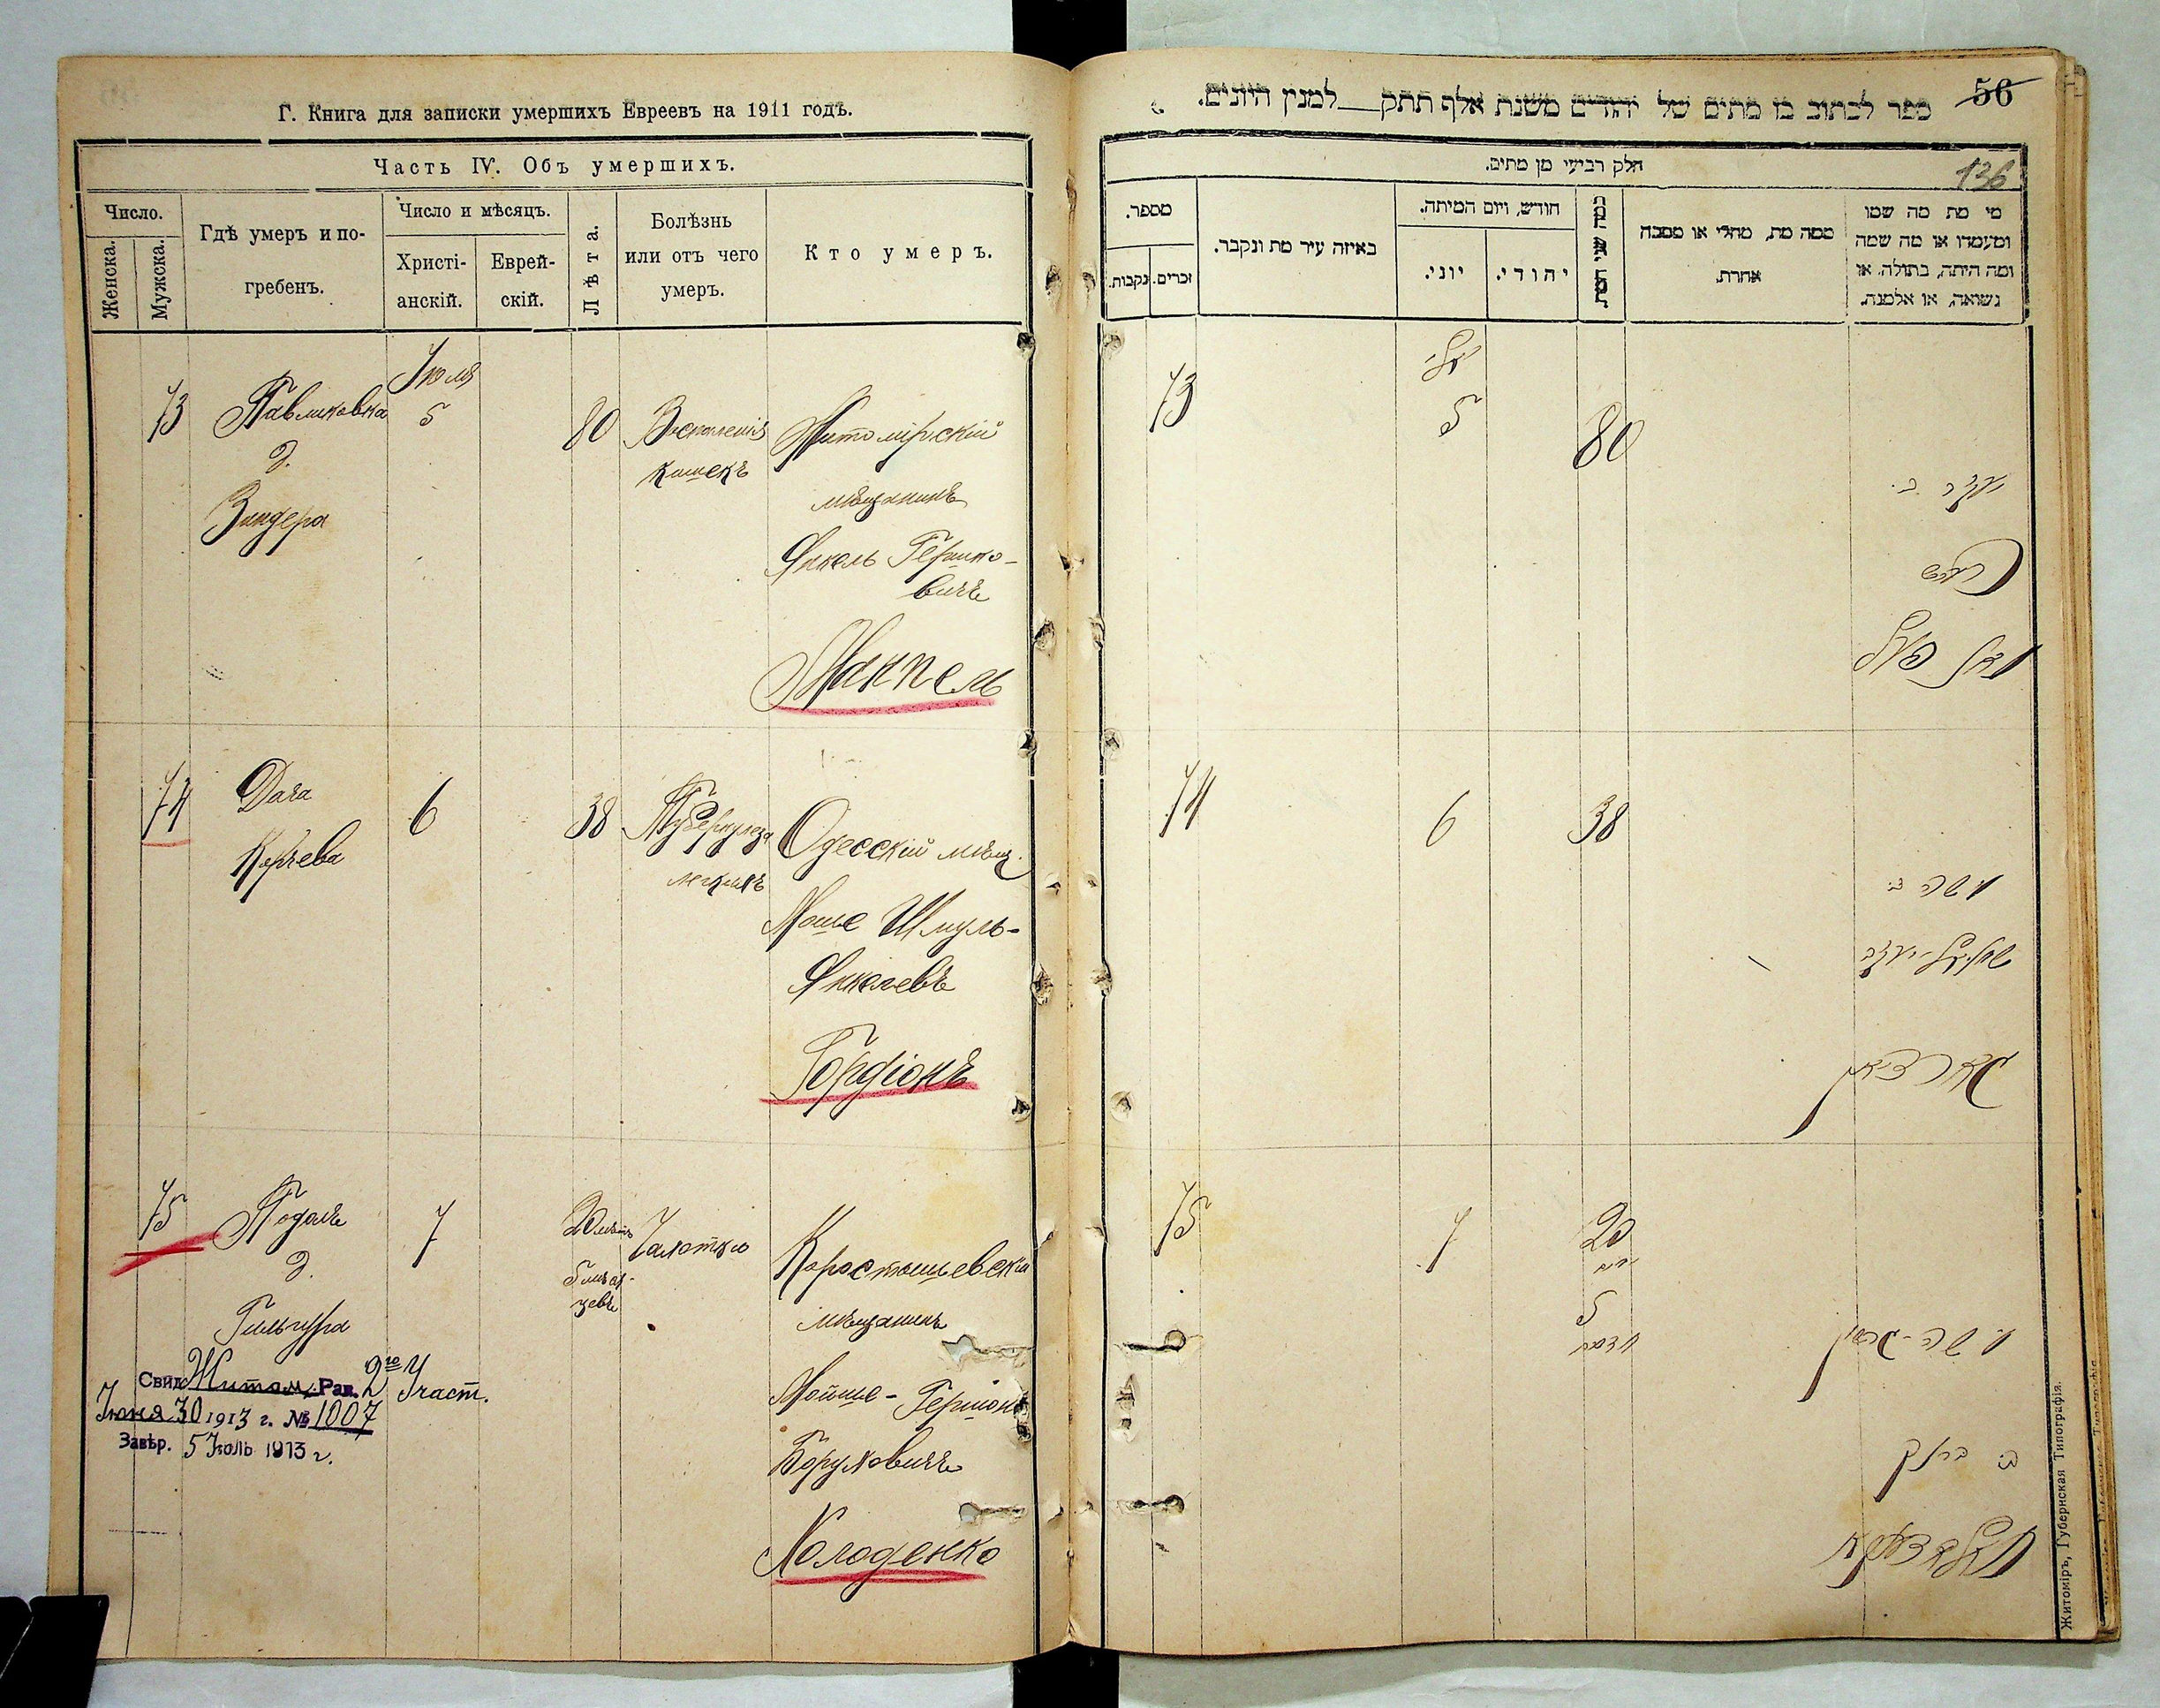 Г. Книга для записки умершихъ Евреевъ на 1911 годъ.
Часть IV. Объ умершихъ.
Число.
Женска.
Мужска.
Гдѣ умеръ и по-
гребенъ.
Число и мѣсяцъ.
Христі-
анскій.
Еврей-
скій.
Лѣта.
Болѣзнь
или отъ чего
умеръ.
Кто умеръ.
Іюля
73
Павликовка
5
80
Воспаленія
кишекъ
Житомірскій
д.
Зиндера
мѣщанинъ
Янкель Гершко-
вичъ
74
Дача
6
38
Туберкулеза
легкихъ
Одесскій мѣщ.
Мошe Шмуль-
Янкелевъ
Гордіонъ
75
Подолъ
7
20 лѣтъ
5 мѣся-
цевъ
Чахотки
д.
мѣщанинъ
Мойше-Гершонъ
Боруховичъ
Холоденко
Свид. Житом. Рав. 2го Участ.
Іюня 30 1913 г. № 1007
Завѣр. 5 Іюль 1913 г.
56
ספר לכתוב בו מתים של יהודים משנת אלף תתק למנין היונים.
136
חלק רביעי מן מתים.
מספר.
זכרים.
נקבות.
באיזה עיר מת ונקבר.
חודש, ויום המיתה.
יוני.
יהודי.
כמה שני המת.
ממה מת, מחלי או מסבה
אחרת.
מי מת מה שמו
ומעמדו או מה שמה
ומה היתה, בתולה, או
נשואה, או אלמנה.
73
יולי
5
80
יעקב ב.
הירש
74
6
38
משה ב:
שמואל-יעקב
גארדיאן
75
7
20
5
חדשי
משה-גרשון
ב: ברוך
חאלאדענקא
Житоміръ, Губернская Типографія.